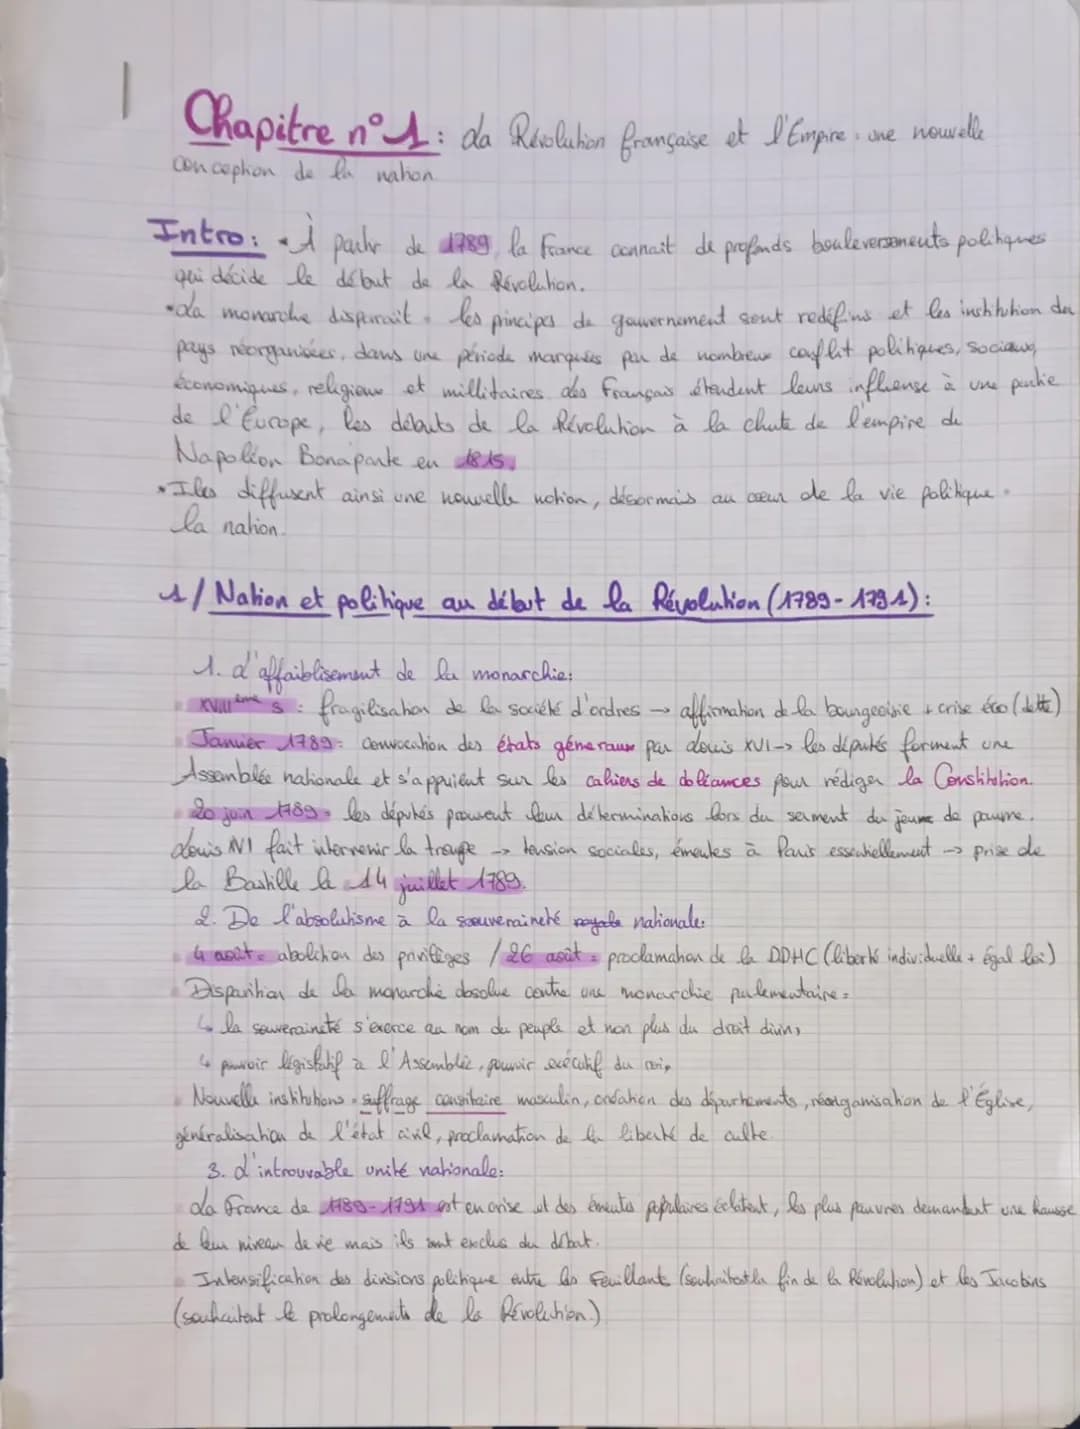 Chapitre n°1 : La Révolution française et l'Empire : une nouvelle
conception de la nation
Intro : • À partir de 1789, la France connait de profonds bouleversements politiques
qui décide le début de la Révolution.
• La monarchie disparait : les principes de gouvernement sont redéfinis et les institution du
pays réorganisées, dans une période marquées par de nombreux conflit politiques, sociaux,
économiques, religieux et millitaires des Français étendent leurs influense à une partie
de l'Europe, les débuts de la Révolution à la chute de l'empire de
Napoléon Bonaparte en 1815.
• Iles diffusent ainsi une nouvelle notion, désormais au cœur de la vie politique :
la nation.
1/ Nation et politique au début de la Révolution (1789-1791) :
1. L'affaiblisement de la monarchie :
XVIIIème s : fragilisation de la société d'ordres → affirmation de la bourgeoisie + crise éco (dette)
Janvier 1789 : convocation des états généraux par Louis XVI → les députés forment une
Assemblée nationale et s'appuient sur les cahiers de doléances pour rédiger la Constitution.
20 juin 1789 : les députés prouvent leur déterminations lors du serment du jeume de paume.
Louis XVI fait intervenir la troupe → tension sociales, émeutes à Paris essentiellement → prise de
la Bastille le 14 juillet 1789.
2. De l'absolutisme à la souveraineté royale nationale :
4 août : abolition des privilèges / 26 août : proclamation de la DDHC (liberté individuelle + égal loi)
Disparition de la monarchie absolue contre une monarchie parlementaire :
↳ la souveraineté s'exerce au nom du peuple et non plus du droit divin,
↳ pouvoir législatif à l'Assemblée, pouvoir exécutif du roi,
Nouvelle institutions : suffrage censitaire masculin, création des départements, réorganisation de l'Église,
généralisation de l'état civil, proclamation de la liberté de culte.
3. L'introuvable unité nationale :
La France de 1789-1791 est en crise et des émeutes populaires éclatent, les plus pauvres demandent une hausse
de leur niveau de vie mais ils sont exclus du débat.
Intensification des divisions politique entre les Feuillants (souhaitent la fin de la Révolution) et les Jacobins
(souhaitent le prolongements de la Révolution.)